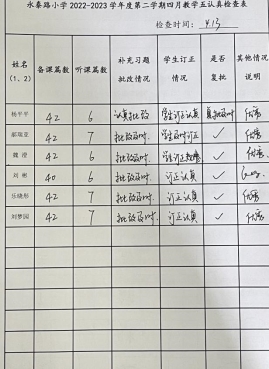 永泰路小学2022-2023学年度第二学期四月教学五认真检查表
检查时间：4.13
姓名（1、2） 备课篇数 听课篇数 补充习题批改情况 学生订正情况 是否复批 其他情况说明
杨平平 42 6 认真批改 学生订正认真 真批及时 优秀
郝瑞亚 42 7 批改及时 学生及时订正 ✓ 优秀
魏澄 42 6 批改及时 学生订正 ✓ 优秀
刘 40 6 批改及时 订正认真 ✓
乐晓彤 42 7 批改及时 订正认真 ✓ 优秀
刘梦园 42 7 批改及时 订正认真 ✓ 优秀